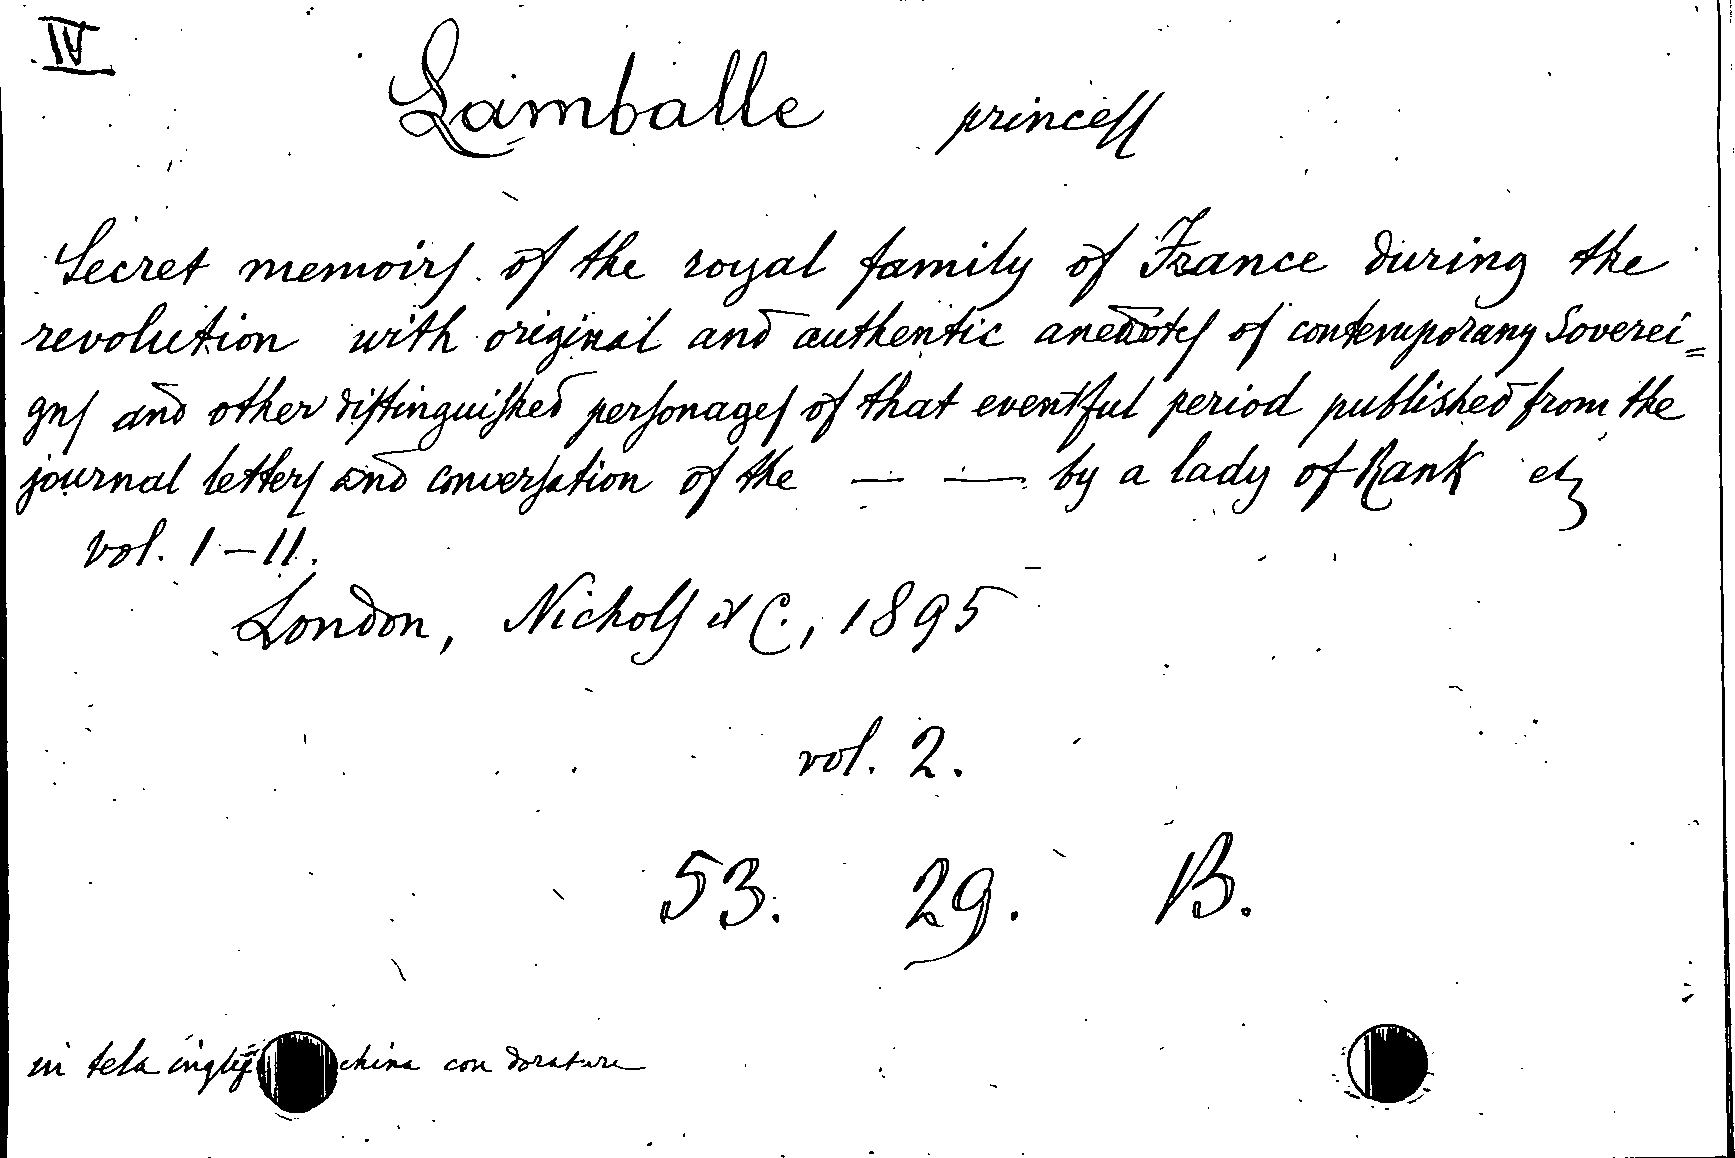 IV
Lamballe princess
Secret memoirs of the royal family of France during the
revolution with original and authentic anecdotes of contemporany Soverei=
gns and other distinguished personages of that eventful period published from the
journal letters and conversation of the — — by a lady of Rank etc
vol. I-II.
London, Nichols & C., 1895
vol. 2.
53. 29. B.
in tela con dorature